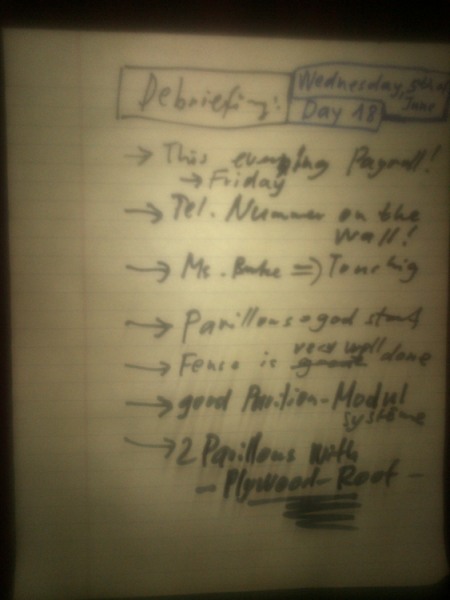 Debriefing:
Wednesday, 5th of June
Day 18
→ This evening Payroll!
→ Friday
→ Tel. Nummer on the
wall!
→ Ms. ⇒ Touching
→ Pavillons good start
→ Fense is very well done
→ good Parition-Modul
systeme
→ 2 Pavillons with
- Plywood-Roof -